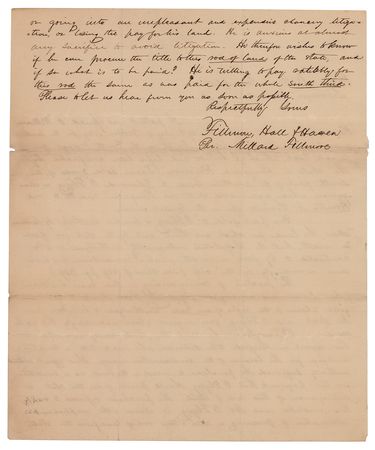 or going into an unpleasant and expensive chancery litiga-
tion, or losing the pay for his land. He is anxious at almost
any sacrifice to avoid litigation. He therefore wishes to know
if he can procure the title to this rod of land of the state, and
if so what is to be paid? He is willing to pay ratibly for
this rod the same as was paid for the whole South third.
Please to let us hear from you as soon as possible
Respectfully Yours
Fillmore, Hall & Haven
Per. Millard Fillmore